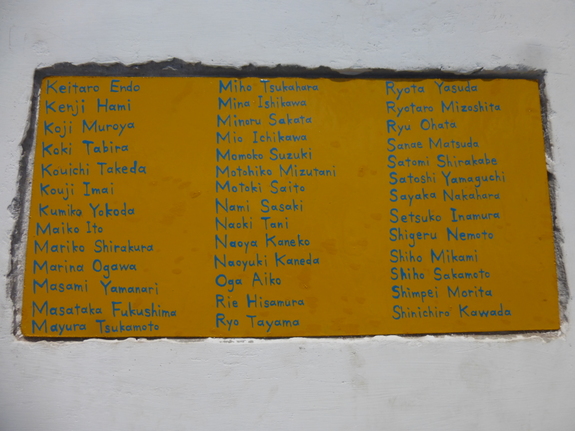 Keitaro Endo
Kenji Hami
Koji Muroya
Koki Tabira
Kouichi Takeda
Kouji Imai
Kumiko Yokoda
Maiko Ito
Mariko Shirakura
Marina Ogawa
Masami Yamanari
Masataka Fukushima
Mayura Tsukamoto
Miho Tsukahara
Mina Ishikawa
Minoru Sakata
Mio Ichikawa
Momoko Suzuki
Motohiko Mizutani
Motoki Saito
Nami Sasaki
Naoki Tani
Naoya Kaneko
Naoyuki Kaneda
Oga Aiko
Rie Hisamura
Ryo Tayama
Ryota Yasuda
Ryotaro Mizoshita
Ryu Ohata
Sanae Matsuda
Satomi Shirakabe
Satoshi Yamaguchi
Sayaka Nakahara
Setsuko Inamura
Shigeru Nemoto
Shiho Mikami
Shiho Sakamoto
Shimpei Morita
Shinichiro Kawada